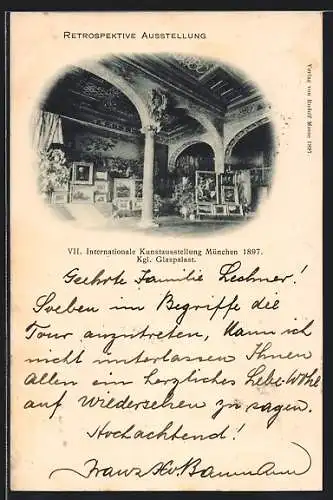 RETROSPEKTIVE AUSSTELLUNG
Verlag von Rudolf Mosse 1897.
VII. Internationale Kunstausstellung München 1897.
Kgl. Glaspalast.
Geehrte Familie Lechner!
Soeben im Begriffe die
Tour anzutreten, kann ich
nicht unterlassen Ihnen
Allen ein herzliches Lebe-Wohl
auf Wiedersehen zu sagen.
Hochachtend!
Franz Xv. Baumann